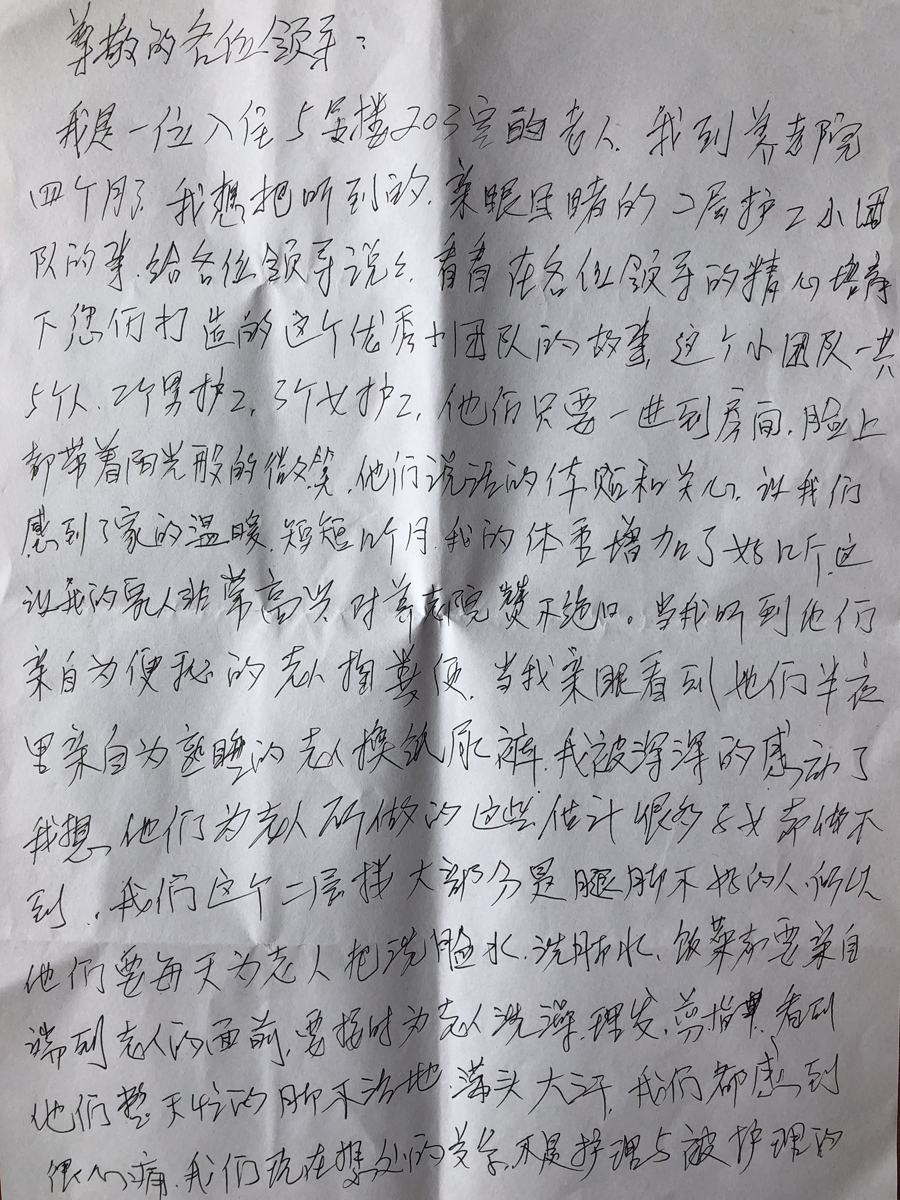 尊敬的各位领导：
我是一位入住5号楼203室的老人.我到养老院
四个月了.我想把听到的.亲眼目睹的二层护工小团
队的事.给各位领导说说.看看在各位领导的精心培育
下您们打造的这个优秀小团队的故事.这个小团队一共
5个人.2个男护工,3个女护工,他们只要一进到房间.脸上
都带着阳光般的微笑.他们说话的体贴和关心.让我们
感到了家的温暖.短短几个月.我的体重增加了好几斤.这
让我的家人非常高兴.对养老院赞不绝口。当我听到他们
亲自为便秘的老人掏粪便.当我亲眼看到她们半夜
里亲自为熟睡的老人换纸尿裤.我被深深的感动了
我想.他们为老人所做的这些.估计很多子女都做不
到.我们这个二层楼大部分是腿脚不好的人.所以
他们要每天为老人把洗脸水.洗脚水、饭菜都要亲自
端到老人的面前,要按时为老人洗澡.理发.剪指甲.看到
他们整天忙的脚不沾地.满头大汗.我们都感到
很心痛.我们现在相处的关系.不是护理与被护理的